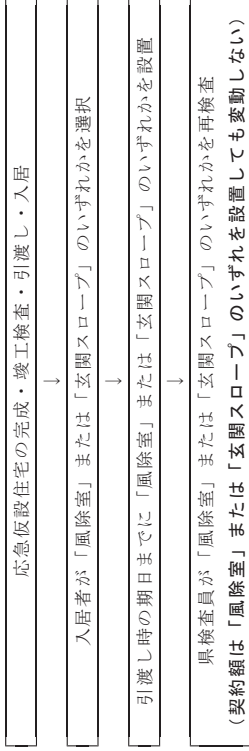 応急仮設住宅の完成・竣工検査・引渡し・入居
↓
入居者が「風除室」または「玄関スロープ」のいずれかを選択
↓
引渡し時の期日までに「風除室」または「玄関スロープ」のいずれかを設置
↓
県検査員が「風除室」または「玄関スロープ」のいずれかを再検査
（契約額は「風除室」または「玄関スロープ」のいずれを設置しても変動しない）